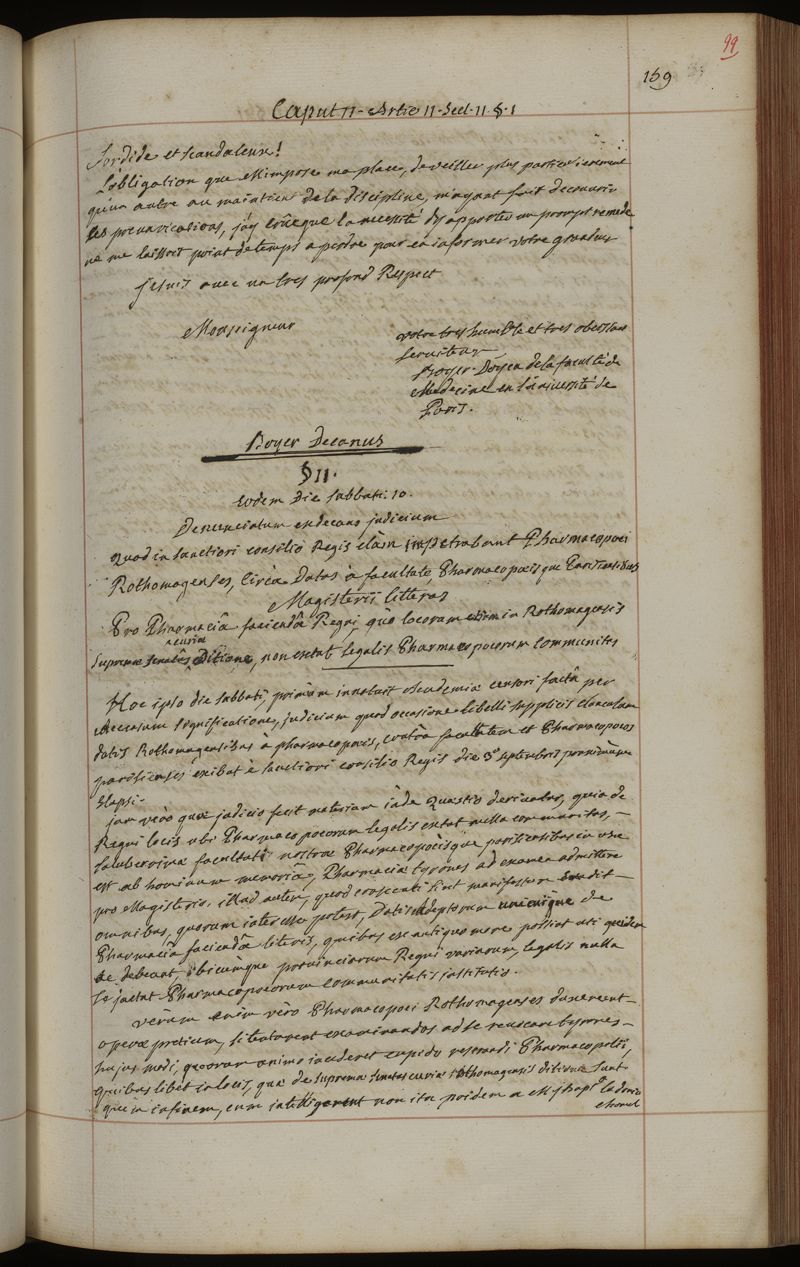 99
159
Caput II - Artic II - Sect. II. §. I
Sordide et scandaleux!
L'obligation que m'impose ma place, de veiller plus particulierement
qu'un autre au maintien de la discipline, m'ayant fait decouvrir
ces prevarications, j'ay crû que la necessité d'y apporter un prompt remede
ne me laissoit point de temps a perdre pour en informer votre grandeur
je suis avec un tres profond Respect
Monseigneur
votre tres humble et tres obeissant
serviteur
Boyer Doyen de la faculté de
Medecine en l'université de
Paris.
Boyer Decanus
§ II.
Eodem Die Sabbati. 10.
Denunciatum en decano judicium
quod in sanctiori consilio Regis clàm impetrabant Pharmacopoei
Rothomagenses, Circà Datas à facultate, Pharmacopoeisque Parisiensibus
Magisterii litteras
Pro Pharmaciâ faciendâ Regni, quo locorum etiam in Rothomagensis
curiæ
Supremæ Senatûs Ditione, non extat legalis Pharmacopoeorum Communitas
Hoc ipso die sabbati, primùm innotuit Academiæ censori factâ per
accersum significatione, judicium quod occasione libelli supplicis clanculum
datis Rothomagensibus à pharmacopoeis, contrà facultatem et Pharmacopoeos
parisienses exibat è sanctiori consilio Regis die 3ª septembris proximùm
Elapsi.
jam verò quæ judicio fecit materiam inde quæstio derivatur, quia de
Regni locis ubi Pharmacopoeorum legalis extat nulla communitas,
saluberrimæ facultati nostræ Pharmacopoeisque parisiensibus in usu
est ab hominum memoriâ, Pharmaciæ tyrones ad examen admittere
pro Magisterio, illud autem, quod consecuti sint manifestum
omnibus, quorum interesse potest, Datis adeptorum unicuique de
Pharmaciâ faciendâ literis, quibus ex antiquo more possint uti quidem
ac debeant, ubicùmque provinciarum Regni variarum, legalis nulla
se jactat Pharmacopoeorum communitatis institutis.
verùm enim vèro Pharmacopoei Rothomagenses duxerunt
operæ pretium, si tentarent examinandos ad se revocare tyrones
hujus modi, quorum animo incideret cupido reserandi Pharmacopolii,
quibus libet in locis, quæ de supremæ senatus curiæ Rothomagensis ditione sunt
que in insinem, cum intelligerent non ita pridem a M. j. bapt.ª Ludovico
chomel